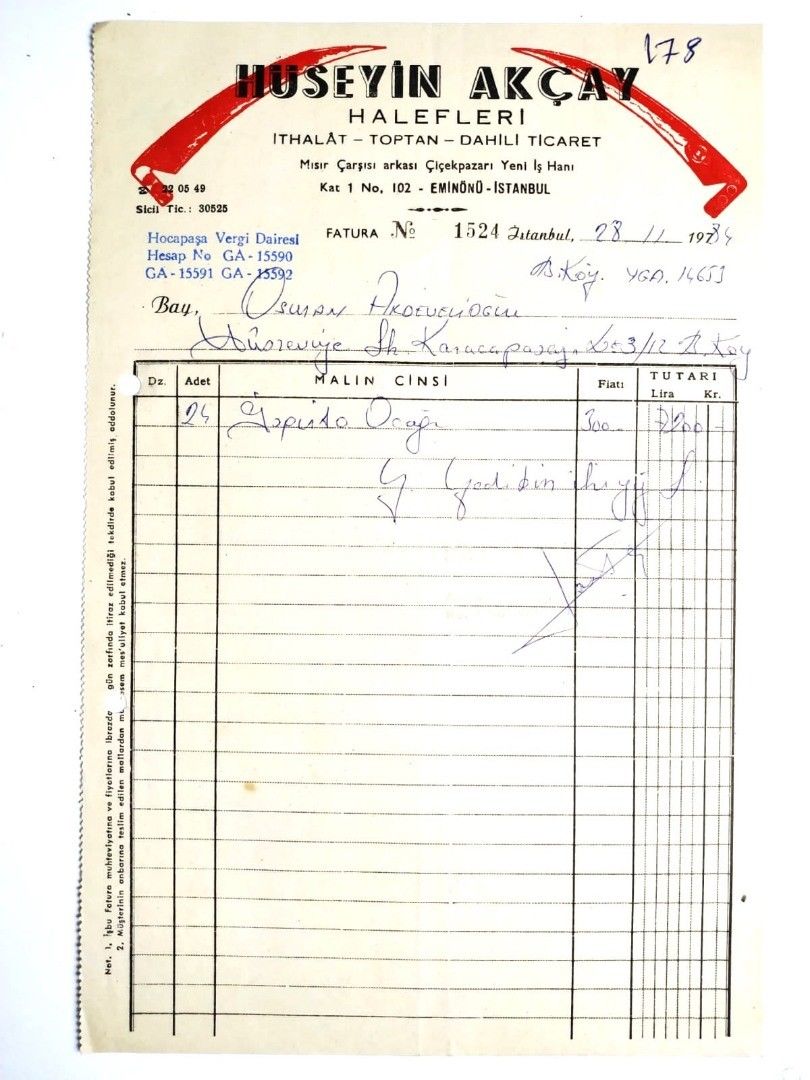 178
HÜSEYİN AKÇAY
HALEFLERİ
İTHALÂT - TOPTAN - DAHİLİ TİCARET
Mısır Çarşısı arkası Çiçekpazarı Yeni İş Hanı
Kat 1 No. 102 - EMİNÖNÜ - İSTANBUL
22 05 49
Sicil Tic.: 30525
Hocapaşa Vergi Dairesi
Hesap No GA - 15590
GA - 15591 GA - 15592
FATURA No 1524 İstanbul, 28 11 1974
B.Köy. YGA. 14653
Bay, Osman
Sk. 3/12 B.Köy
Dz. Adet MALIN CİNSİ Fiatı TUTARI
Lira Kr.
24 İspirto Ocağı 300.- 7200 -
Y. Yedibin ikiyüz
Not. 1. İşbu fatura muhteviyatına ve fiyatlarına ibrazde gün zarfında itiraz edilmediği takdirde kabul edilmiş addolunur.
2. Müşterinin anbarına teslim edilen mallardan mes'uliyet kabul etmez.